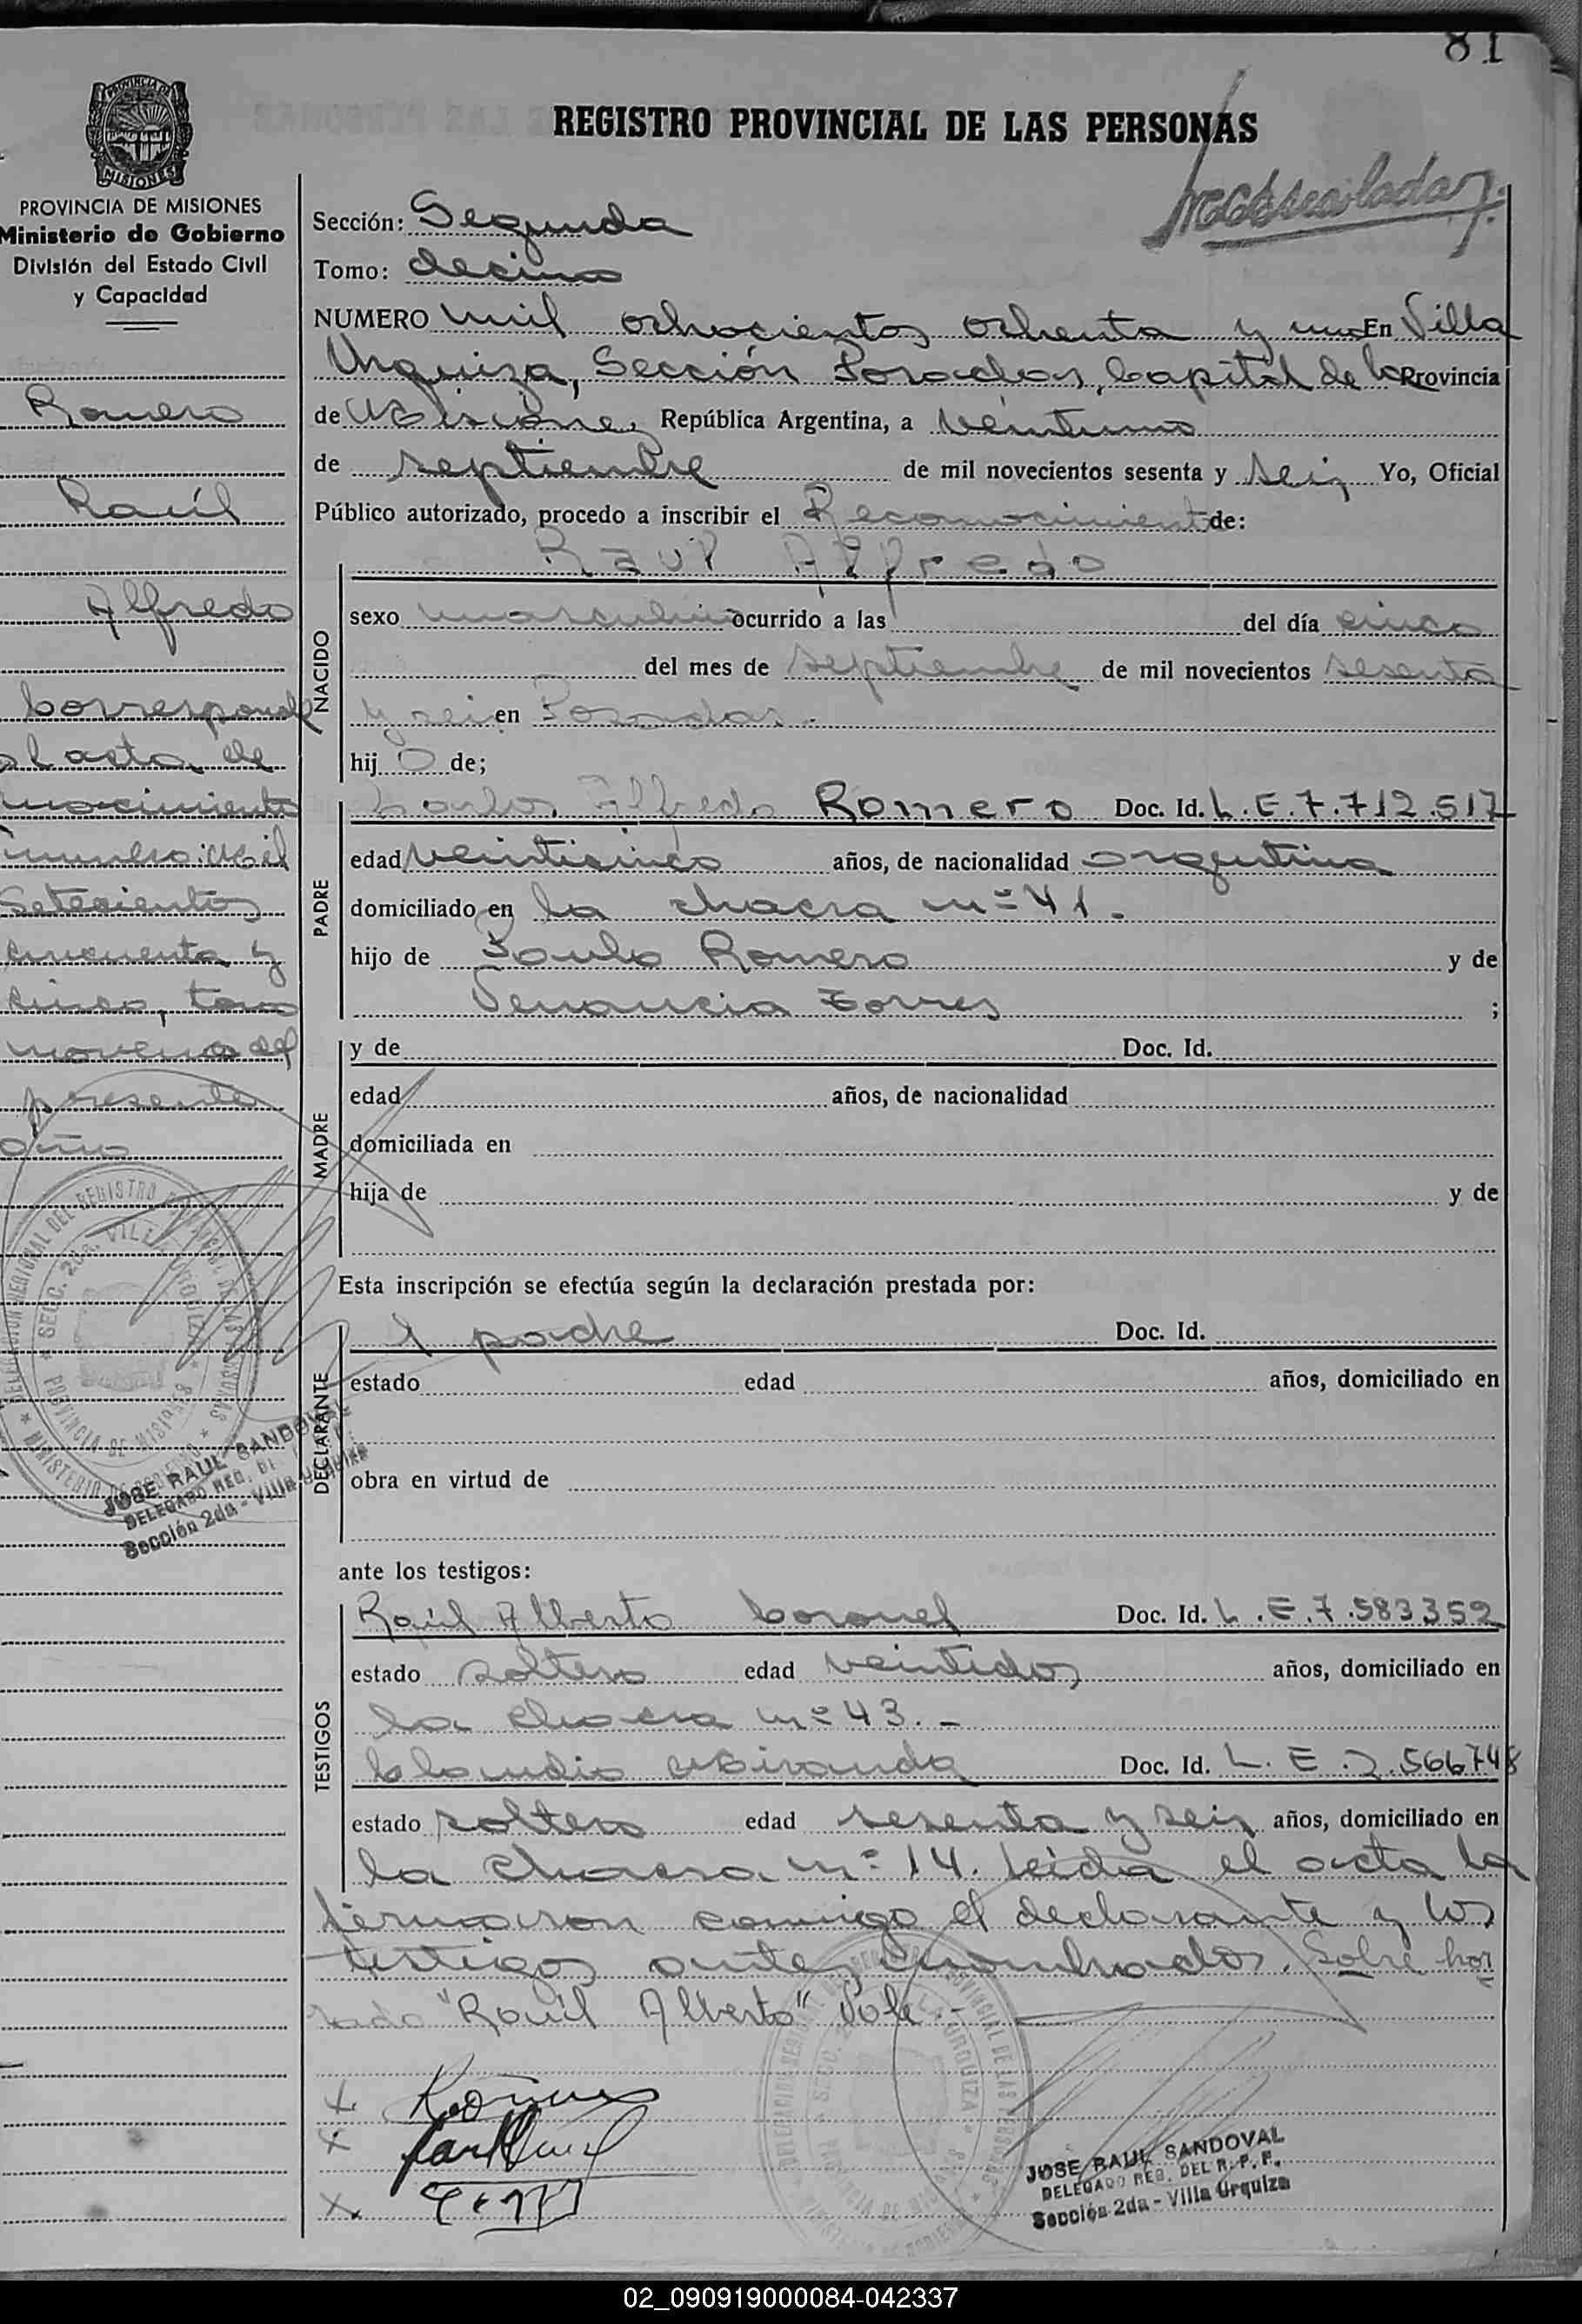 81
REGISTRO PROVINCIAL DE LAS PERSONAS
PROVINCIA DE MISIONES
Ministerio de Gobierno
División del Estado Civil
y Capacidad
Romero
Raúl
Alfredo
Corresponde
al acta de
nacimiento
número: Mil
Setecientos
cincuenta y
cinco, tomo
noveno del
presente
año
JOSE RAUL SANDOVAL
DELEGADO REG. DEL
Sección 2da - Villa Urquiza
Sección: Segunda
Tomo: decimo
NUMERO mil ochocientos ochenta y uno En Villa
Urquiza, Sección Posadas, Capital de la Provincia
de Misiones República Argentina, a veintiuno
de septiembre de mil novecientos sesenta y seis Yo, Oficial
Público autorizado, procedo a inscribir el Reconocimiento de:
Raul Alfredo
NACIDO
sexo masculino ocurrido a las del día cinco
del mes de septiembre de mil novecientos sesenta
y seis en Posadas.-
hij o de;
PADRE
Carlos Alfredo Romero Doc. Id. L.E.7.712.517
edad veinticinco años, de nacionalidad argentina
domiciliado en la chacra nº 41.
hijo de Paulo Romero y de
Venancia Torres ;
MADRE
y de Doc. Id.
edad años, de nacionalidad
domiciliada en
hija de y de
Esta inscripción se efectúa según la declaración prestada por:
DECLARANTE
el padre Doc. Id.
estado edad años, domiciliado en
obra en virtud de
ante los testigos:
TESTIGOS
Raúl Alberto Coronel Doc. Id. L.E.7.583352
estado soltero edad veintidos años, domiciliado en
la chacra nº 43.-
Claudio Miranda Doc. Id. L.E.2.566748
estado soltero edad sesenta y seis años, domiciliado en
la chacra nº 14. leida el acta la
firmaron conmigo el declarante y los
testigos antes nombrados. Sobre bor
rado "Raúl Alberto" Vale.-
JOSE RAUL SANDOVAL
DELEGADO REG. DEL R.P.P.
Sección 2da - Villa Urquiza
02_090919000084-042337